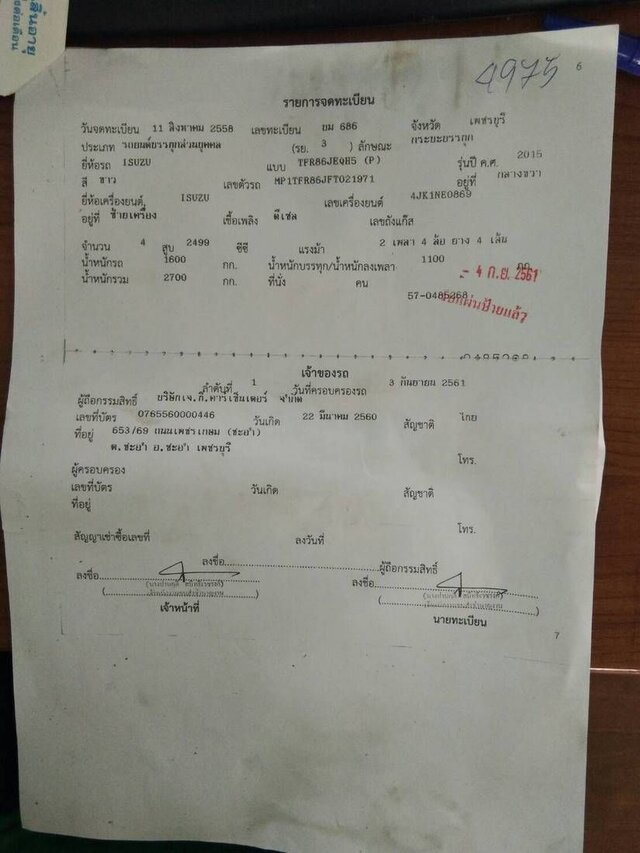 สิ้นอายุ
4975
6
รายการจดทะเบียน
วันจดทะเบียน 11 สิงหาคม 2558 เลขทะเบียน ยม 686 จังหวัด เพชรบุรี
ประเภท รถยนต์บรรทุกส่วนบุคคล (รย. 3 ) ลักษณะ กระบะบรรทุก
ยี่ห้อรถ ISUZU แบบ TFR86JEQH5 (P) รุ่นปี ค.ศ. 2015
สี ขาว เลขตัวรถ MP1TFR86JFT021971 อยู่ที่ กลางขวา
ยี่ห้อเครื่องยนต์ ISUZU เลขเครื่องยนต์ 4JK1NE0869
อยู่ที่ ซ้ายเครื่อง เชื้อเพลิง ดีเซล เลขถังแก๊ส
จำนวน 4 สูบ 2499 ซีซี แรงม้า 2 เพลา 4 ล้อ ยาง 4 เส้น
น้ำหนักรถ 1600 กก. น้ำหนักบรรทุก/น้ำหนักลงเพลา 1100 กก.
น้ำหนักรวม 2700 กก. ที่นั่ง คน
- 4 ก.ย. 2561
57-0485268
แผ่นป้ายแล้ว
เจ้าของรถ
ลำดับที่ 1 วันที่ครอบครองรถ 3 กันยายน 2561
ผู้ถือกรรมสิทธิ์ บริษัทเจ.กี้.คาร์เซ็นเตอร์ จำกัด
เลขที่บัตร 0765560000446 วันเกิด 22 มีนาคม 2560 สัญชาติ ไทย
ที่อยู่ 653/69 ถนนเพชรเกษม (ชะอำ)
ต.ชะอำ อ.ชะอำ เพชรบุรี
โทร.
ผู้ครอบครอง
เลขที่บัตร วันเกิด สัญชาติ
ที่อยู่
โทร.
สัญญาเช่าซื้อเลขที่ ลงวันที่
ลงชื่อ ผู้ถือกรรมสิทธิ์
ลงชื่อ ลงชื่อ
เจ้าหน้าที่ นายทะเบียน
7